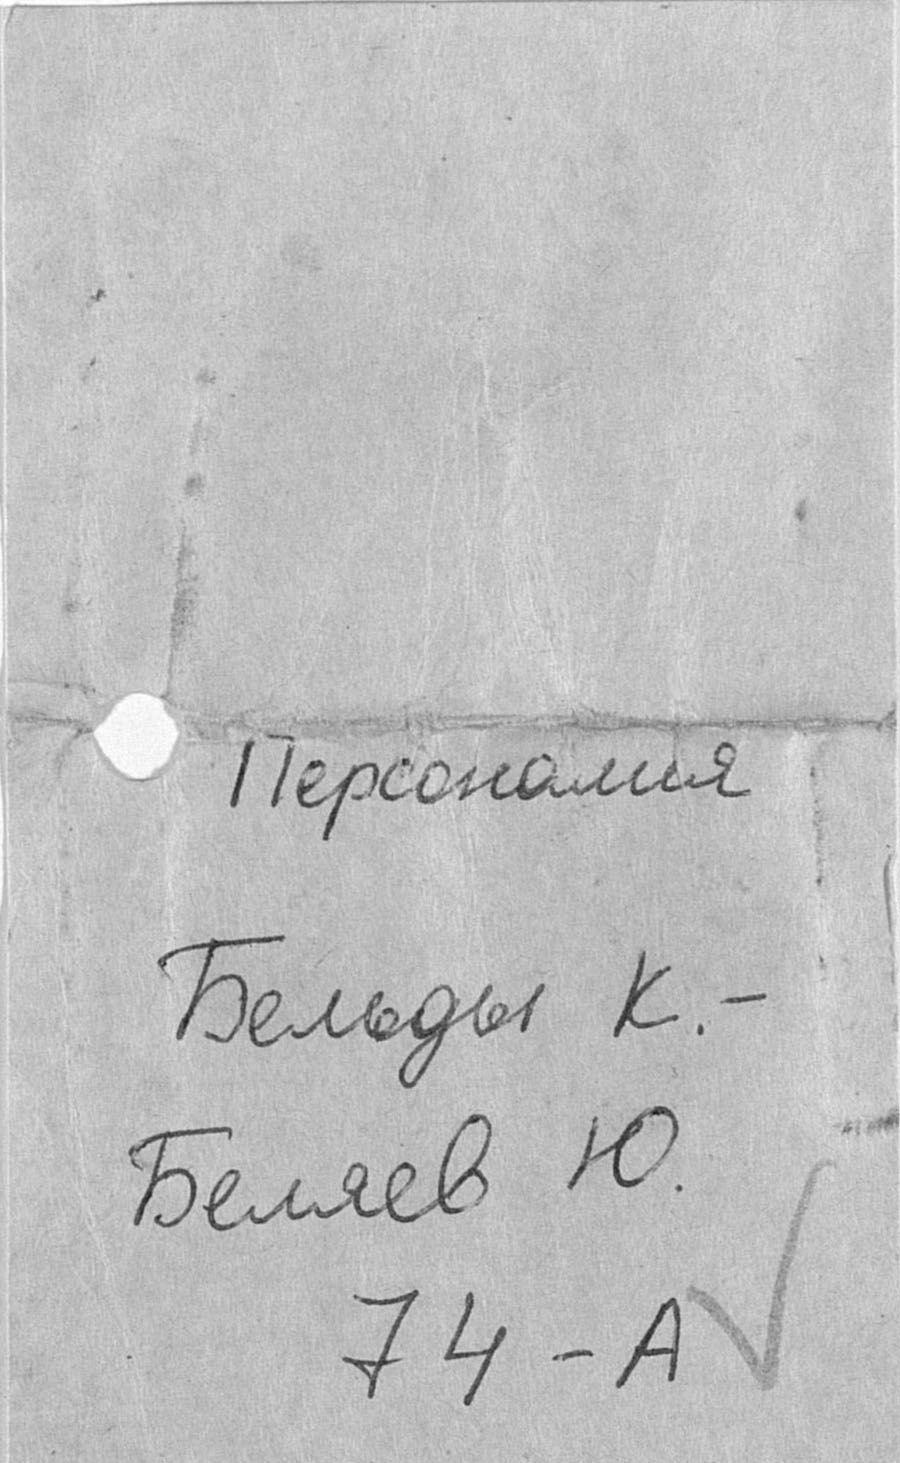 Персоналия
Бельды К.-
Беляев Ю.
74-А